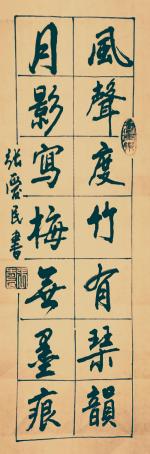 風聲度竹有琴韻
月影寫梅無墨痕
張學民書